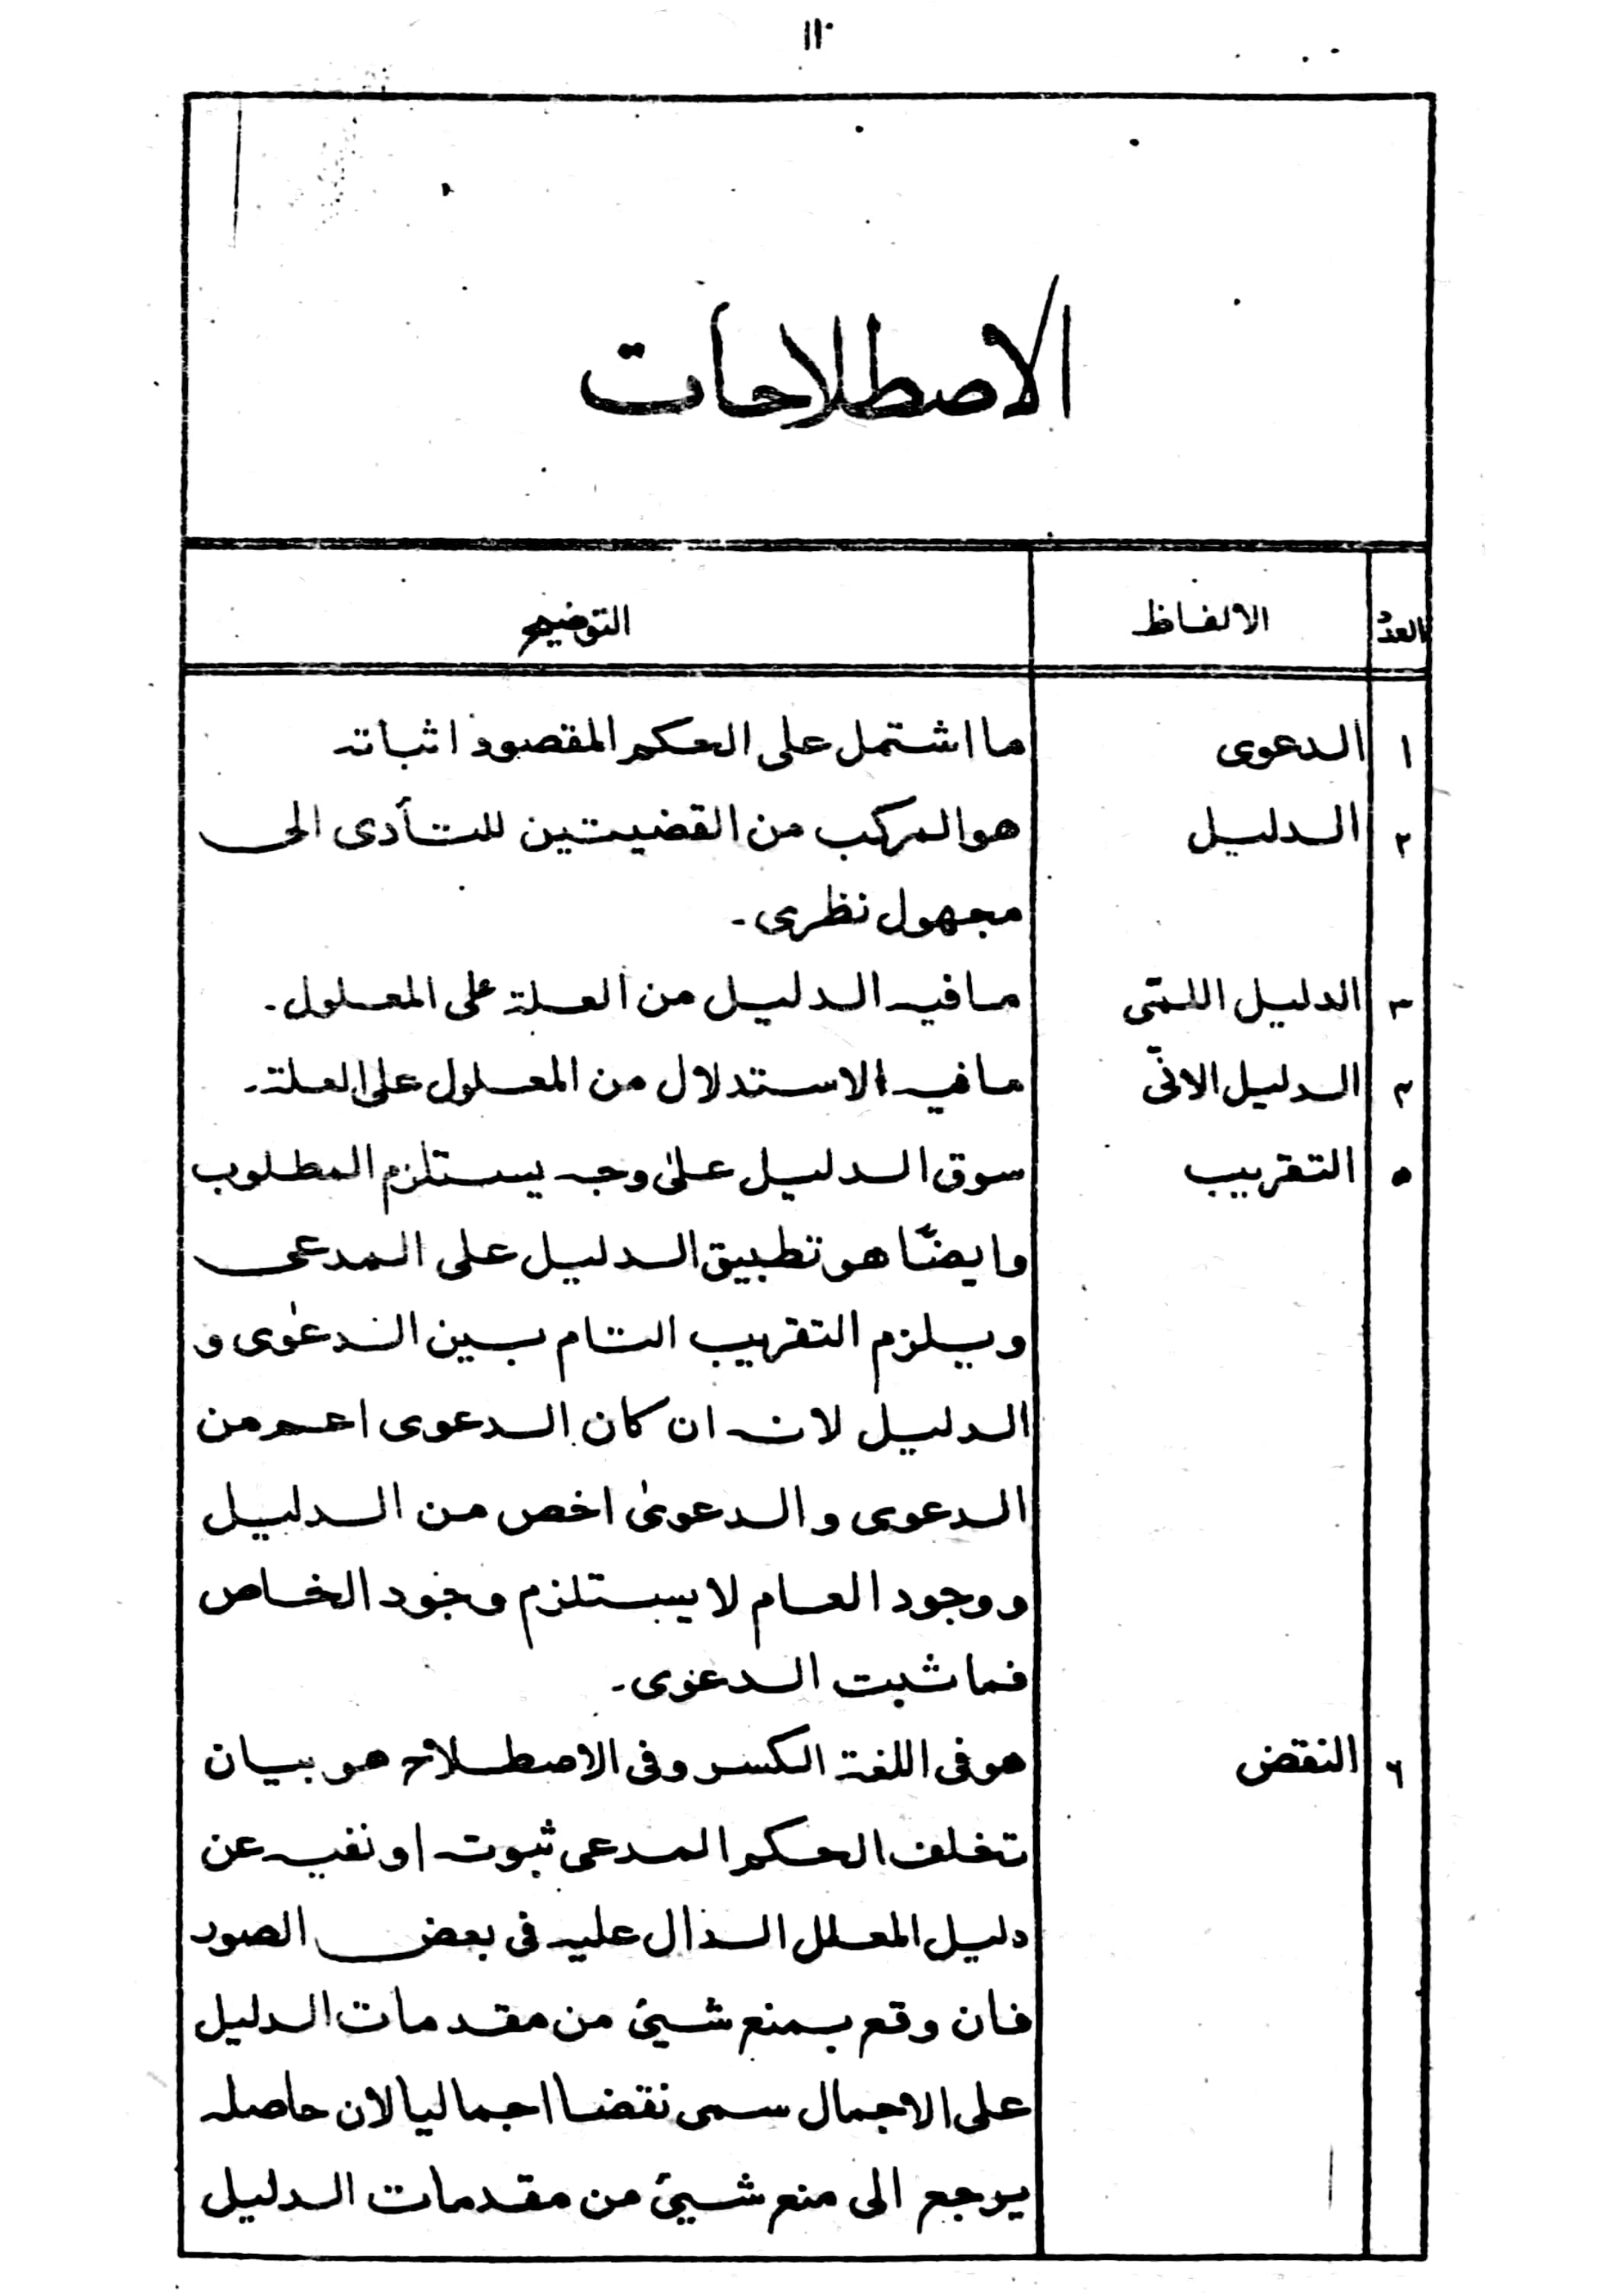 ١١٠
الاصطلاحات
العدد الالفاظ التوضيح
١ الدعوى ما اشتمل على الحكم المقصود اثباته
٢ الدليل هو المركب من القضيتين للتأدى الى
مجهول نظرى۔
٣ الدليل اللمّى ما فيه الدليل من العلة على المعلول۔
٤ الدليل الانّى ما فيه الاستدلال من المعلول على العلة۔
٥ التقريب سوق الدليل على وجه يستلزم المطلوب
وايضًا هو تطبيق الدليل على المدعى
ويلزم التقريب التام بين الدعوٰى و
الدليل لانه ان كان الدعوى اعم من
الدعوى والدعوىٰ اخص من الدليل
ووجود العام لا يستلزم وجود الخاص
فما ثبت الدعوى۔
٦ النقض هو فى اللغة الكسر وفى الاصطلاح هو بيان
تخلف الحكم المدعى ثبوته او نفيه عن
دليل المعلل الدال عليه فى بعض الصور
فان وقع بمنع شيئ من مقدمات الدليل
على الاجمال سمى نقضا اجماليا لان حاصله
يرجع الى منع شيئ من مقدمات الدليل